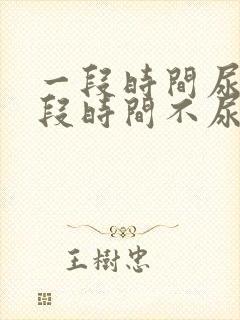 一段時間尿
段時間不尿
王樹忠